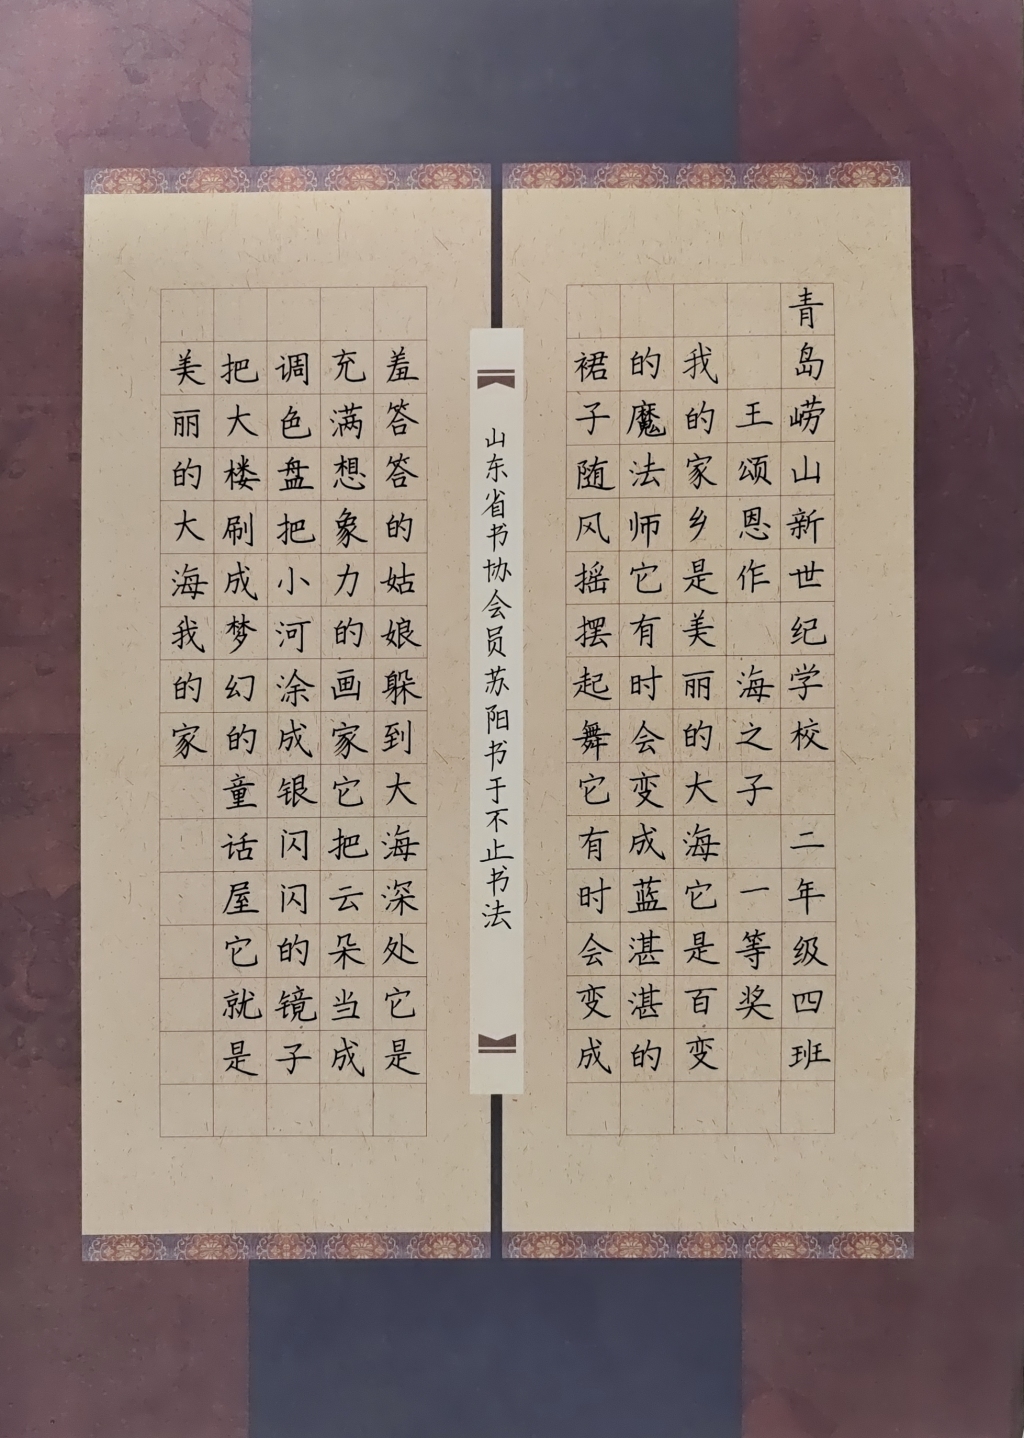 青岛崂山新世纪学校 二年级四班
王颂恩作 海之子 一等奖
我的家乡是美丽的大海它是百变
的魔法师它有时会变成蓝湛湛的
裙子随风摇摆起舞它有时会变成
山东省书协会员苏阳书于不止书法
羞答答的姑娘躲到大海深处它是
充满想象力的画家它把云朵当成
调色盘把小河涂成银闪闪的镜子
把大楼刷成梦幻的童话屋它就是
美丽的大海我的家